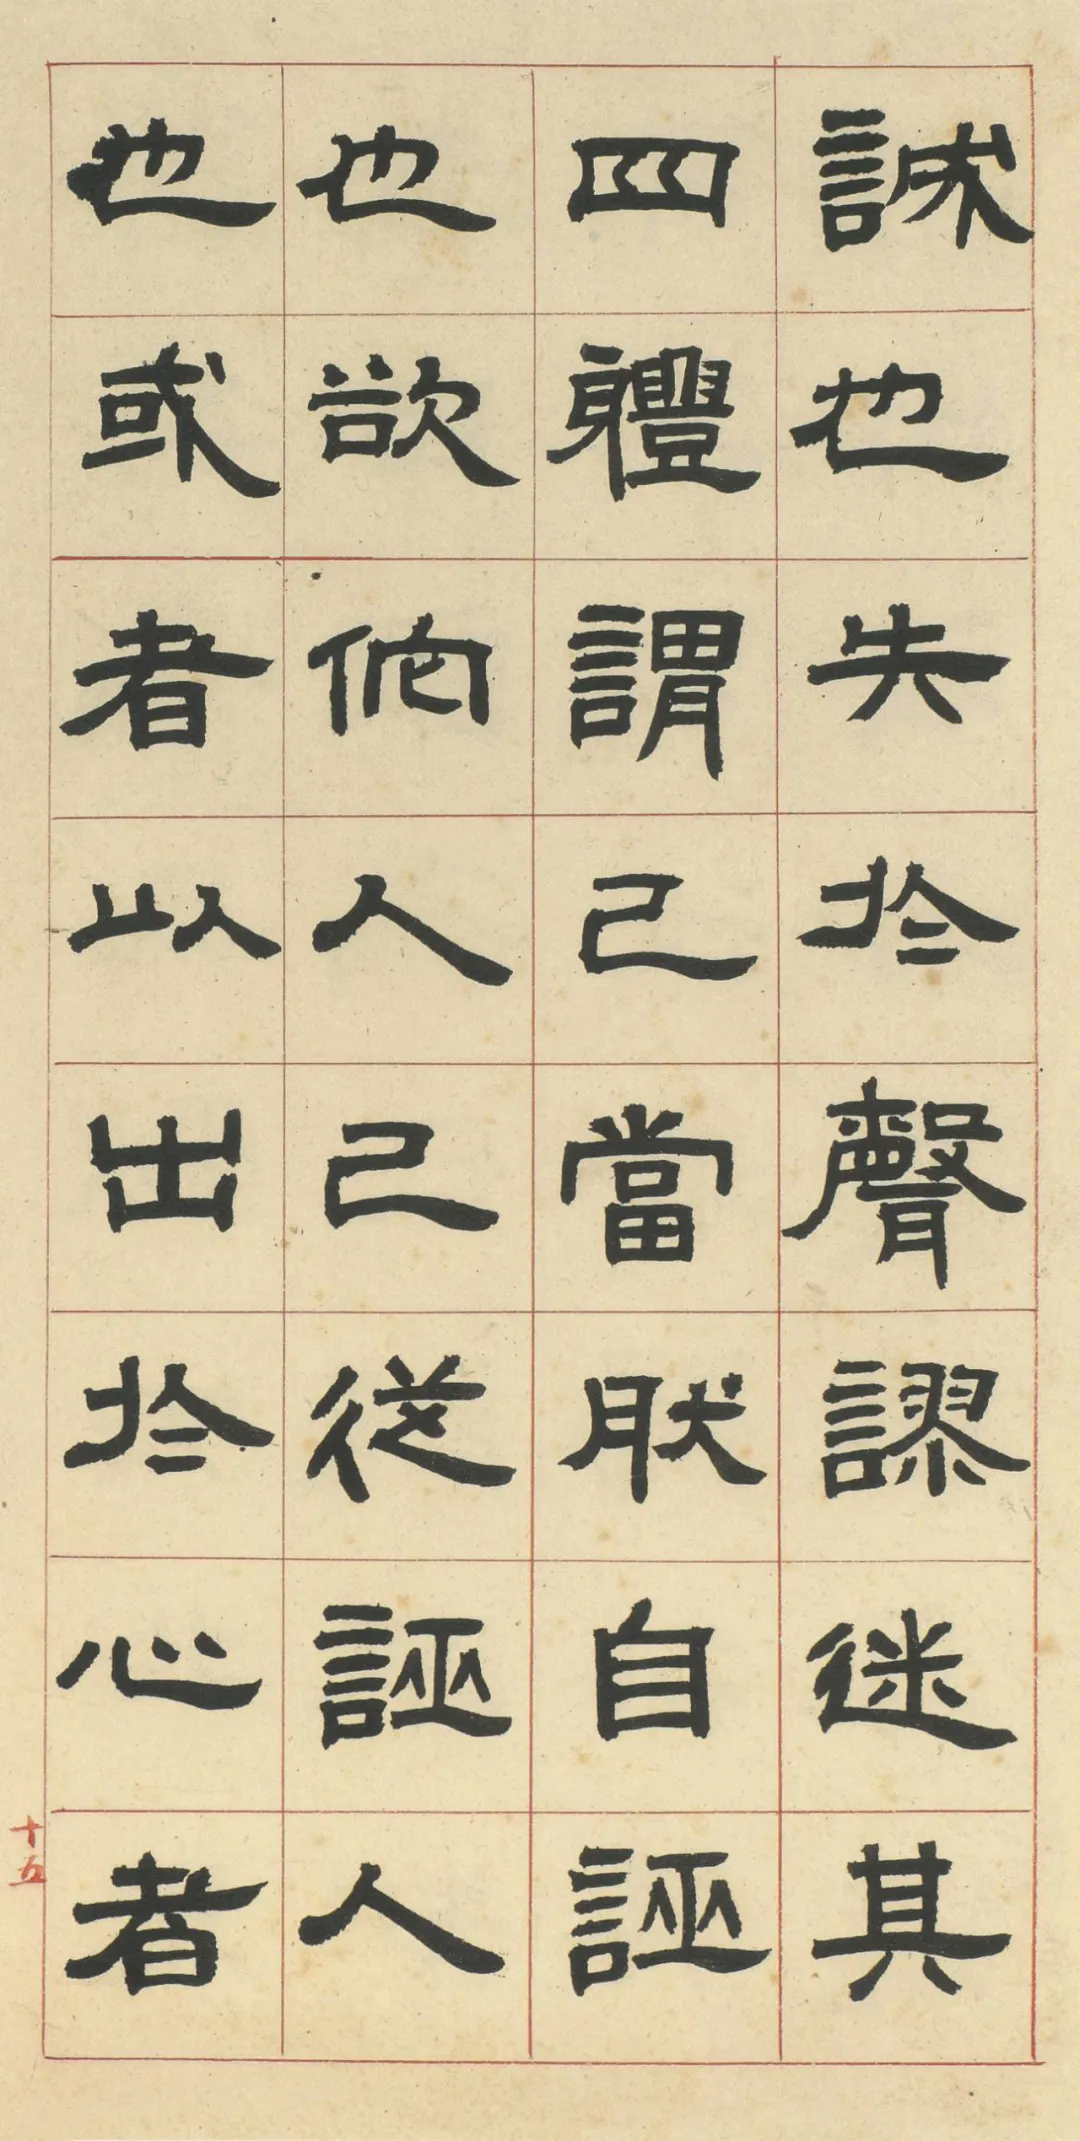 誠也失於聲謬迷其
四軆謂己當肰自誣
也欲佗人己從誣人
也或者以出於心者
十五